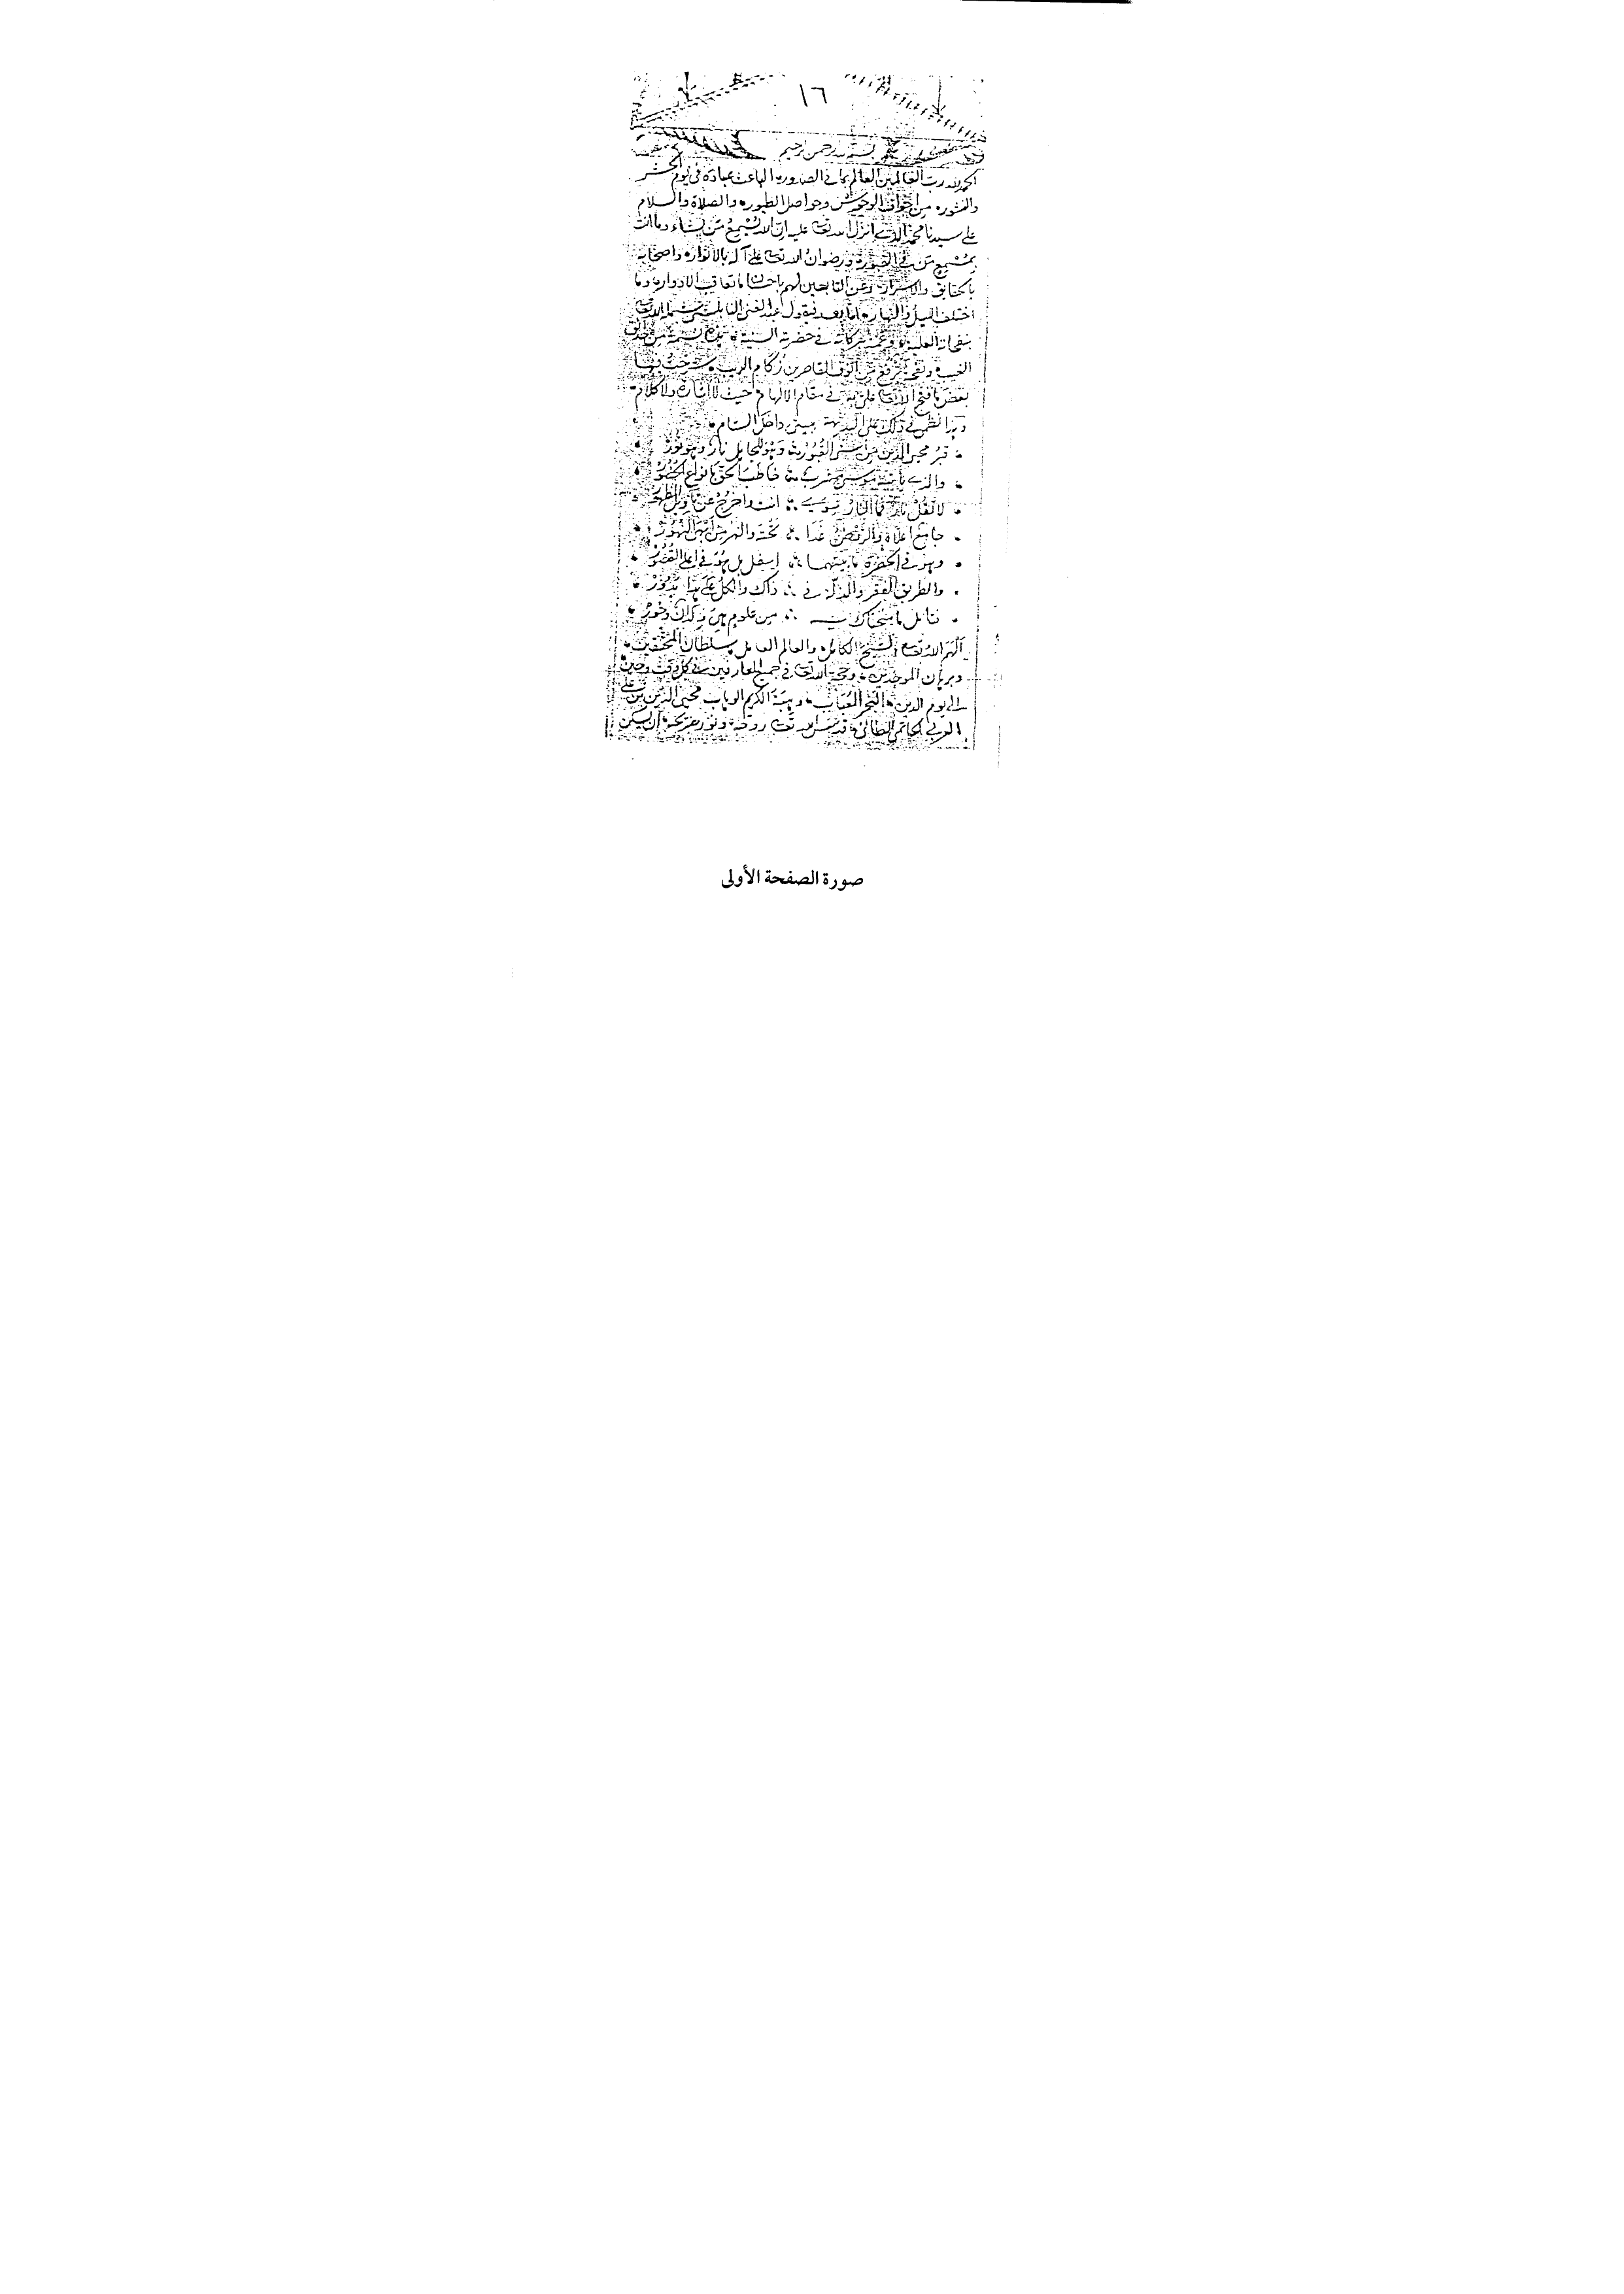 ١٦
بسم الله الرحمن الرحيم
الحمد لله رب العالمين العالم بما في الصدور الباعث عباده في يوم الحشر
والنشور من أجواف الوحوش وحواصل الطيور والصلاة والسلام
على سيدنا محمد الذي أنزل الله تعالى عليه إن الله يُسْمِعُ مَن يشاء وما أنت
بمُسْمِعٍ مَن في القبور ورضوان الله تعالى على آله بالأنوار وأصحابه
بالحقايق والأسرار وعن التابعين لهم بإحسان ما تعاقب الأدوار وما
اختلف الليل والنهار أما بعد فيقول عبد الغني النابلسي الله تعالى
بنفحاته العلية بركاته في حضرته السنية من
الغيب القاصرين زكام الريب
بعض ما فتح الله تعالى في مقام الإلهام حيث لا إشارة ولا كلام
في ذلك على البديهة بيتي داخل الشام
قبر محيي الدين من القبور وهو للجاهل نار وهو نور
والذي يأتيه خاطب الحق بأنواع الحضور
لا تقل نار فما النار سوى أنت واخرج عن
جامع أعلاه والروض غدا تحته والنهر من
وهو في الحضرة ما بينهما أسفل بل هو في أعلى القصور
والطريق الفقر والذلة في ذاك والكل على هذا يدور
من علوم هي
ألهم الله تعالى الشيخ الكامل والعالم العامل سلطان المحققين
وبرهان الموحدين الله تعالى في جميع العارفين في كل وقت وحين
إلى يوم الدين البحر العباب وهبة الكريم الوهاب محيي الدين بن علي
العربي الحاتمي الطائي قدس الله تعالى روحه ونور ضريحه أن يسكن
صورة الصفحة الأولى